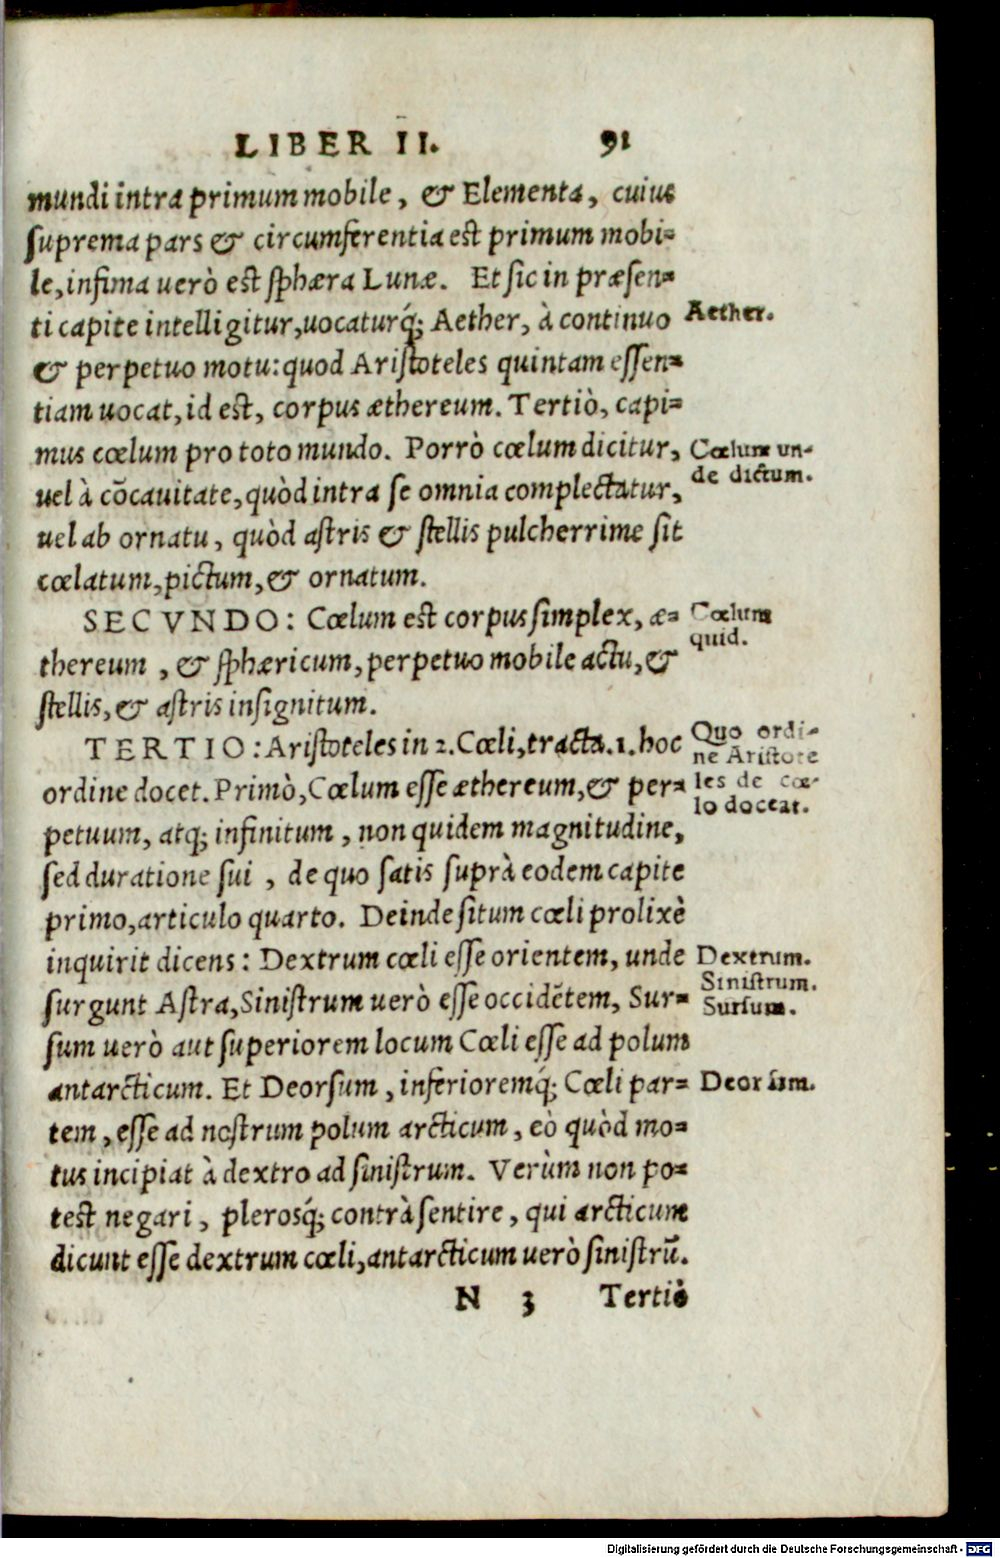 LIBER II. 91
mundi intra primum mobile, & Elementa, cuius
suprema pars & circumferentia est primum mobi-
le, infima uerò est sphæra Lunæ. Et sic in præsen-
ti capite intelligitur, uocaturq́; Aether, à continuo
& perpetuo motu: quod Aristoteles quintam essen-
tiam uocat, id est, corpus æthereum. Tertiò, capi-
mus cœlum pro toto mundo. Porrò cœlum dicitur,
uel à cōcauitate, quòd intra se omnia complectatur,
uel ab ornatu, quòd astris & stellis pulcherrime sit
cœlatum, pictum, & ornatum.
SECVNDO: Cœlum est corpus simplex, æ-
thereum, & sphæricum, perpetuo mobile actu, &
stellis, & astris insignitum.
TERTIO: Aristoteles in 2. Cœli, tracta. 1. hoc
ordine docet. Primò, Cœlum esse æthereum, & per-
petuum, atq; infinitum, non quidem magnitudine,
sed duratione sui, de quo satis suprà eodem capite
primo, articulo quarto. Deinde situm cœli prolixè
inquirit dicens: Dextrum cœli esse orientem, unde
surgunt Astra, Sinistrum uerò esse occidētem, Sur-
sum uerò aut superiorem locum Cœli esse ad polum
antarcticum. Et Deorsum, inferioremq́; Cœli par-
tem, esse ad nostrum polum arcticum, eò quòd mo-
tus incipiat à dextro ad sinistrum. Verùm non po-
test negari, plerosq́; contrà sentire, qui arcticum
dicunt esse dextrum cœli, antarcticum uerò sinistrū.
N 3 Tertiò
Aether.
Cœlum un-
de dictum.
Cœlum
quid.
Quo ordi-
ne Aristote
les de cœ-
lo doceat.
Dextrum.
Sinistrum.
Sursum.
Deorsum.
Digitalisierung gefördert durch die Deutsche Forschungsgemeinschaft - DFG